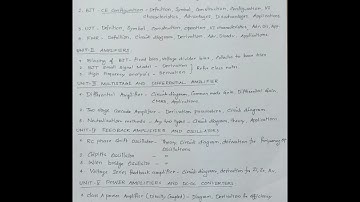 2. BJT - CE Configuration - Definition, Symbol, Construction, Configuration, VI
Characteristics, Advantages, Disadvantages, Applications
3. Definition, Symbol, Construction, operation, VI characteristics, Adv,
4. - Definition, Circuit diagram, Derivation, Adv, Disadv, Applications.
UNIT-II AMPLIFIERS
* Biasing of BJT - Fixed bias, voltage divider bias,
* BJT small signal Model - Derivation } Refer class notes
* High frequency analysis - Derivation
UNIT-III MULTISTAGE AND DIFFERENTIAL AMPLIFIER
* Differential Amplifier - Circuit diagram, Common mode Gain, Differential Gain,
CMRR, Applications.
* Two stage Cascade Amplifier - Derivation, Parameters, Circuit diagram.
* Neutralization methods - Any two types - Circuit diagram, theory, Applications
UNIT-IV FEEDBACK AMPLIFIERS AND OSCILLATORS
1. RC phase shift Oscillator - Theory, Circuit diagram, derivation for frequency of
Oscillations
2. Colpitts Oscillator - "
3. Wien bridge Oscillator - "
4. Voltage Series feedback amplifier - Circuit diagram, derivation for
UNIT-V POWER AMPLIFIERS AND DC/DC CONVERTERS
* Class A power Amplifier - Diagram, Derivation for efficiency